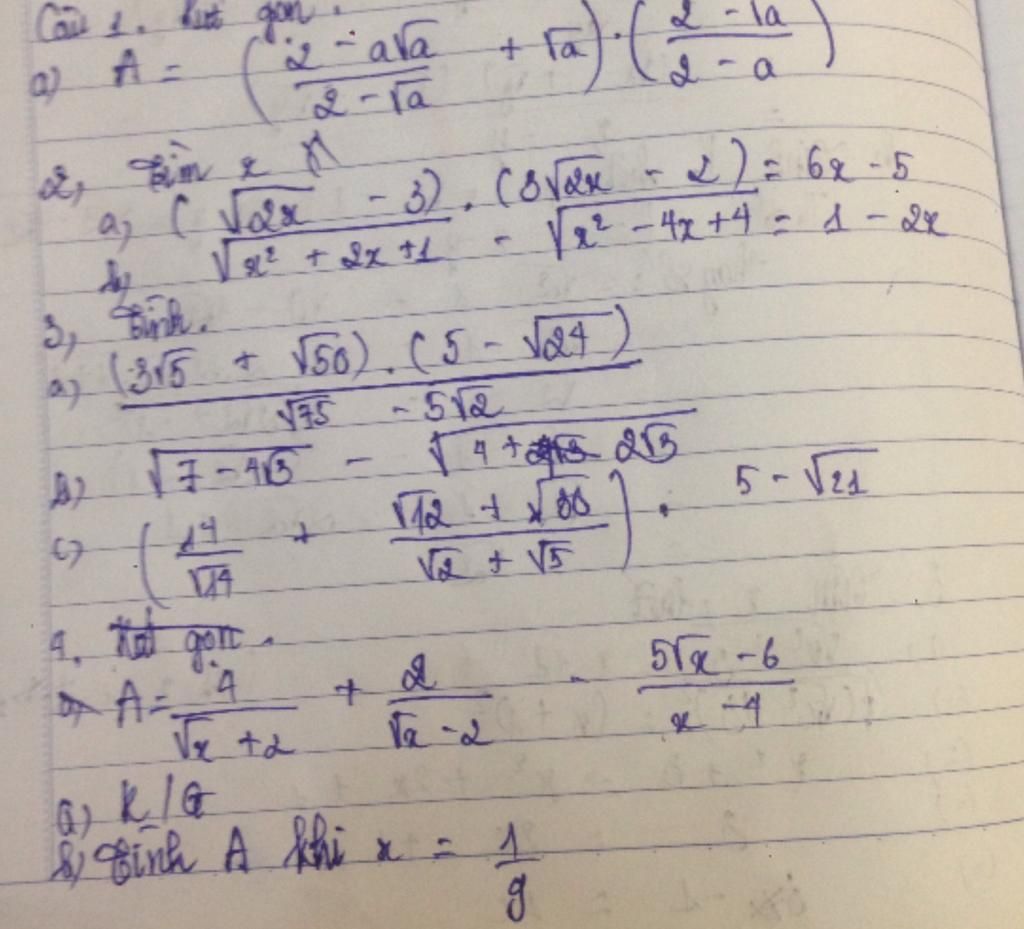 Câu 1. Rút gọn.
a) A = ( (2 - a√a)/(2 - √a) + √a ) . ( (2 - √a)/(2 - a) )
2, Tìm x
a, (√2x - 3) . (3√2x - 2) = 6x - 5
b, √(x² + 2x + 1) - √(x² - 4x + 4) = 1 - 2x
3, Tính.
a) (3√5 + √50) . (5 - √24) / (√75 - 5√2)
b) √(7 - 4√3) - √(4 + 2√3)
c) ( 14/√14 + (√12 + √30)/(√2 + √5) ) . 5 - √21
4. Rút gọn.
A = 4/(√x + 2) + 2/(√x - 2) - (5√x - 6)/(x - 4)
a) R/G
b) Tính A khi x = 1/9